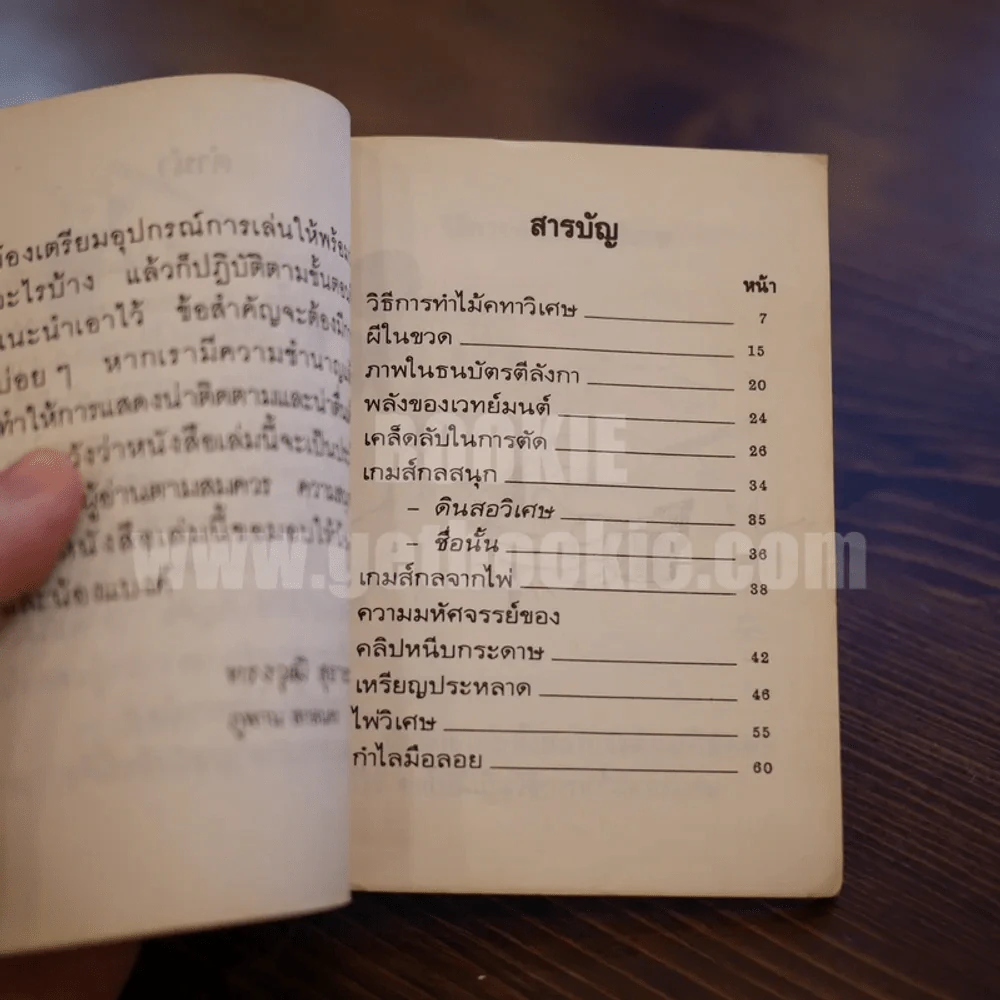 ้องเตรียมอุปกรณ์การเล่นให้พร้อม
อะไรบ้าง แล้วก็ปฏิบัติตามขั้นตอน
แนะนำเอาไว้ ข้อสำคัญจะต้องมี
บ่อยๆ หากเรามีความชำนาญ
ทำให้การแสดงน่าติดตามและน่า
วังว่าหนังสือเล่มนี้จะเป็น
ผู้อ่านตามสมควร ความ
หนังสือเล่มนี้ขอมอบให้
และน้องแบงค์
สารบัญ
หน้า
วิธีการทำไม้คทาวิเศษ 7
ผีในขวด 15
ภาพในธนบัตรตีลังกา 20
พลังของเวทย์มนต์ 24
เคล็ดลับในการตัด 26
เกมส์กลสนุก 34
- ดินสอวิเศษ 35
- ชื่อนั้น 36
เกมส์กลจากไพ่ 38
ความมหัศจรรย์ของ
คลิปหนีบกระดาษ 42
เหรียญประหลาด 46
ไพ่วิเศษ 55
กำไลมือลอย 60
BOOKIE
www.getbookie.com